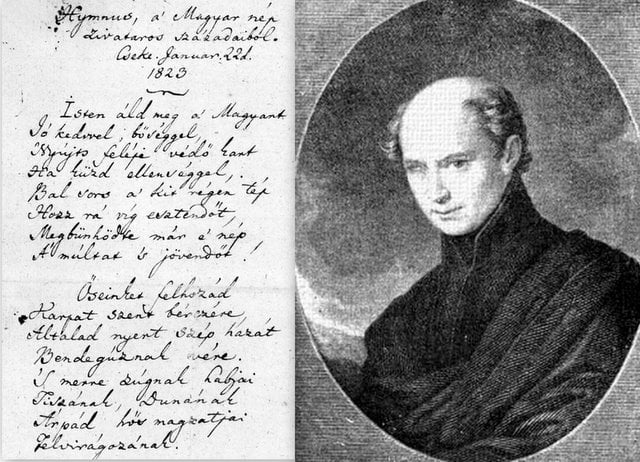 Hymnus, a' Magyar nép
zivataros századaiból.
Cseke. Januar. 22d.
1823
Isten áld meg a' Magyart
Jó kedvvel, bőséggel,
Nyújts feléje védő kart
Ha küzd ellenséggel,
Bal sors a' kit régen tép
Hozz rá víg esztendőt,
Megbűnhödte már e' nép
A' múltat 's jövendőt!
Őseinket felhozád
Kárpát szent bérczére,
Általad nyert szép hazát
Bendegúznak vére.
'S merre zúgnak habjai
Tiszának, Dunának
Árpád hős magzatjai
Felvirágozának.